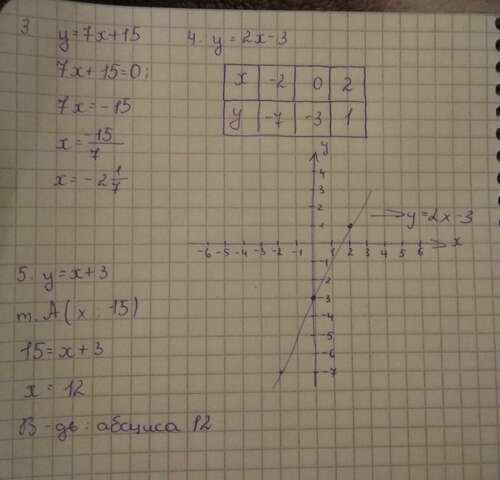 3
y=7x+15
7x+15=0;
7x=-15
x=-15/7
x=-2 1/7
4. y=2x-3
x -2 0 2
y -7 -3 1
y
4
3
2
1
-6 -5 -4 -3 -2 -1 1 2 3 4 5 6
x
-1
-2
-3
-4
-5
-6
-7
y=2x-3
5. y=x+3
т. A(x; 15)
15=x+3
x=12
В-дь: абсциса 12